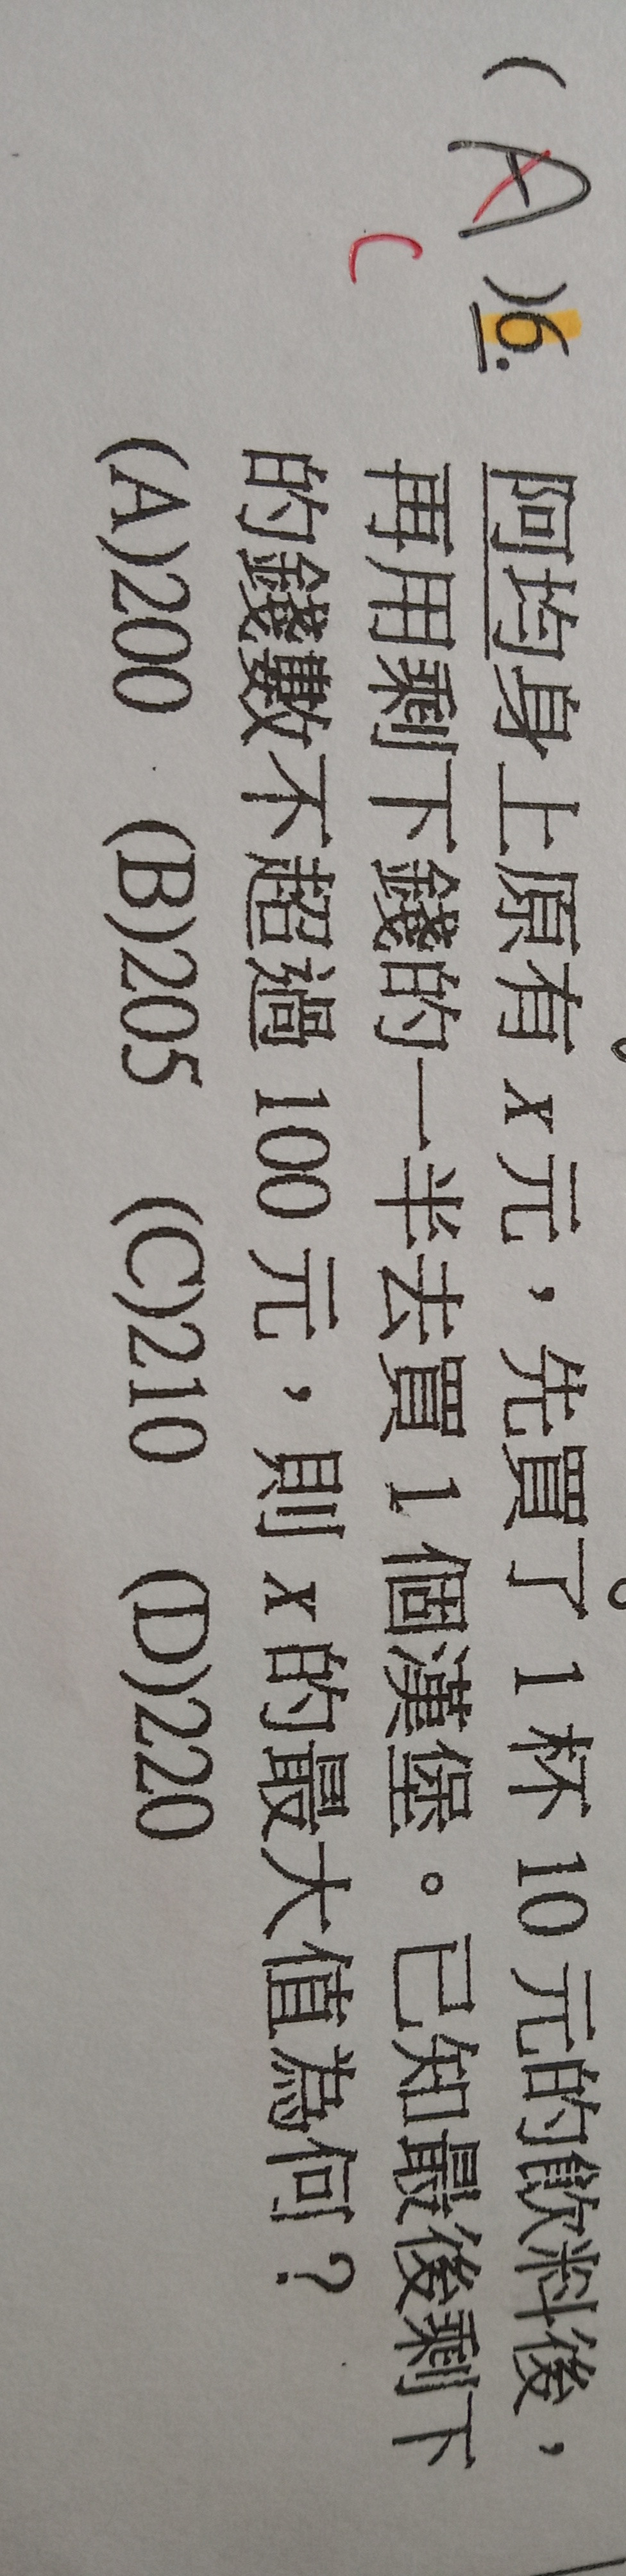 (A)6. 阿均身上原有 x 元，先買了 1 杯 10 元的飲料後，
C 再用剩下錢的一半去買 1 個漢堡。已知最後剩下
的錢數不超過 100 元，則 x 的最大值為何？
(A)200 (B)205 (C)210 (D)220